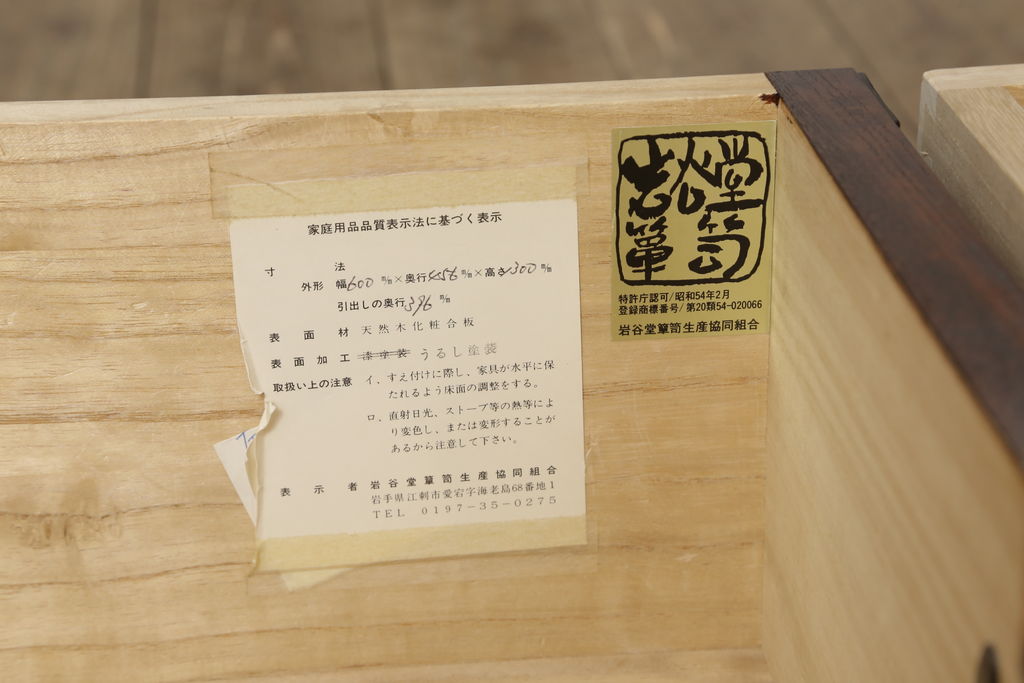 家庭用品品質表示法に基づく表示
寸法
外形 幅600m/m×奥行456m/m×高さ1300m/m
引出しの奥行396m/m
表面材 天然木化粧合板
表面加工 漆塗装 うるし塗装
取扱い上の注意 イ、すえ付けに際し、家具が水平に保
たれるよう床面の調整をする。
ロ、直射日光、ストーブ等の熱等によ
り変色し、または変形することが
あるから注意して下さい。
表示者 岩谷堂簞笥生産協同組合
岩手県江刺市愛宕字海老島68番地1
TEL 0197-35-0275
岩谷堂簞笥
特許庁認可/昭和54年2月
登録商標番号/第20類54-020066
岩谷堂簞笥生産協同組合